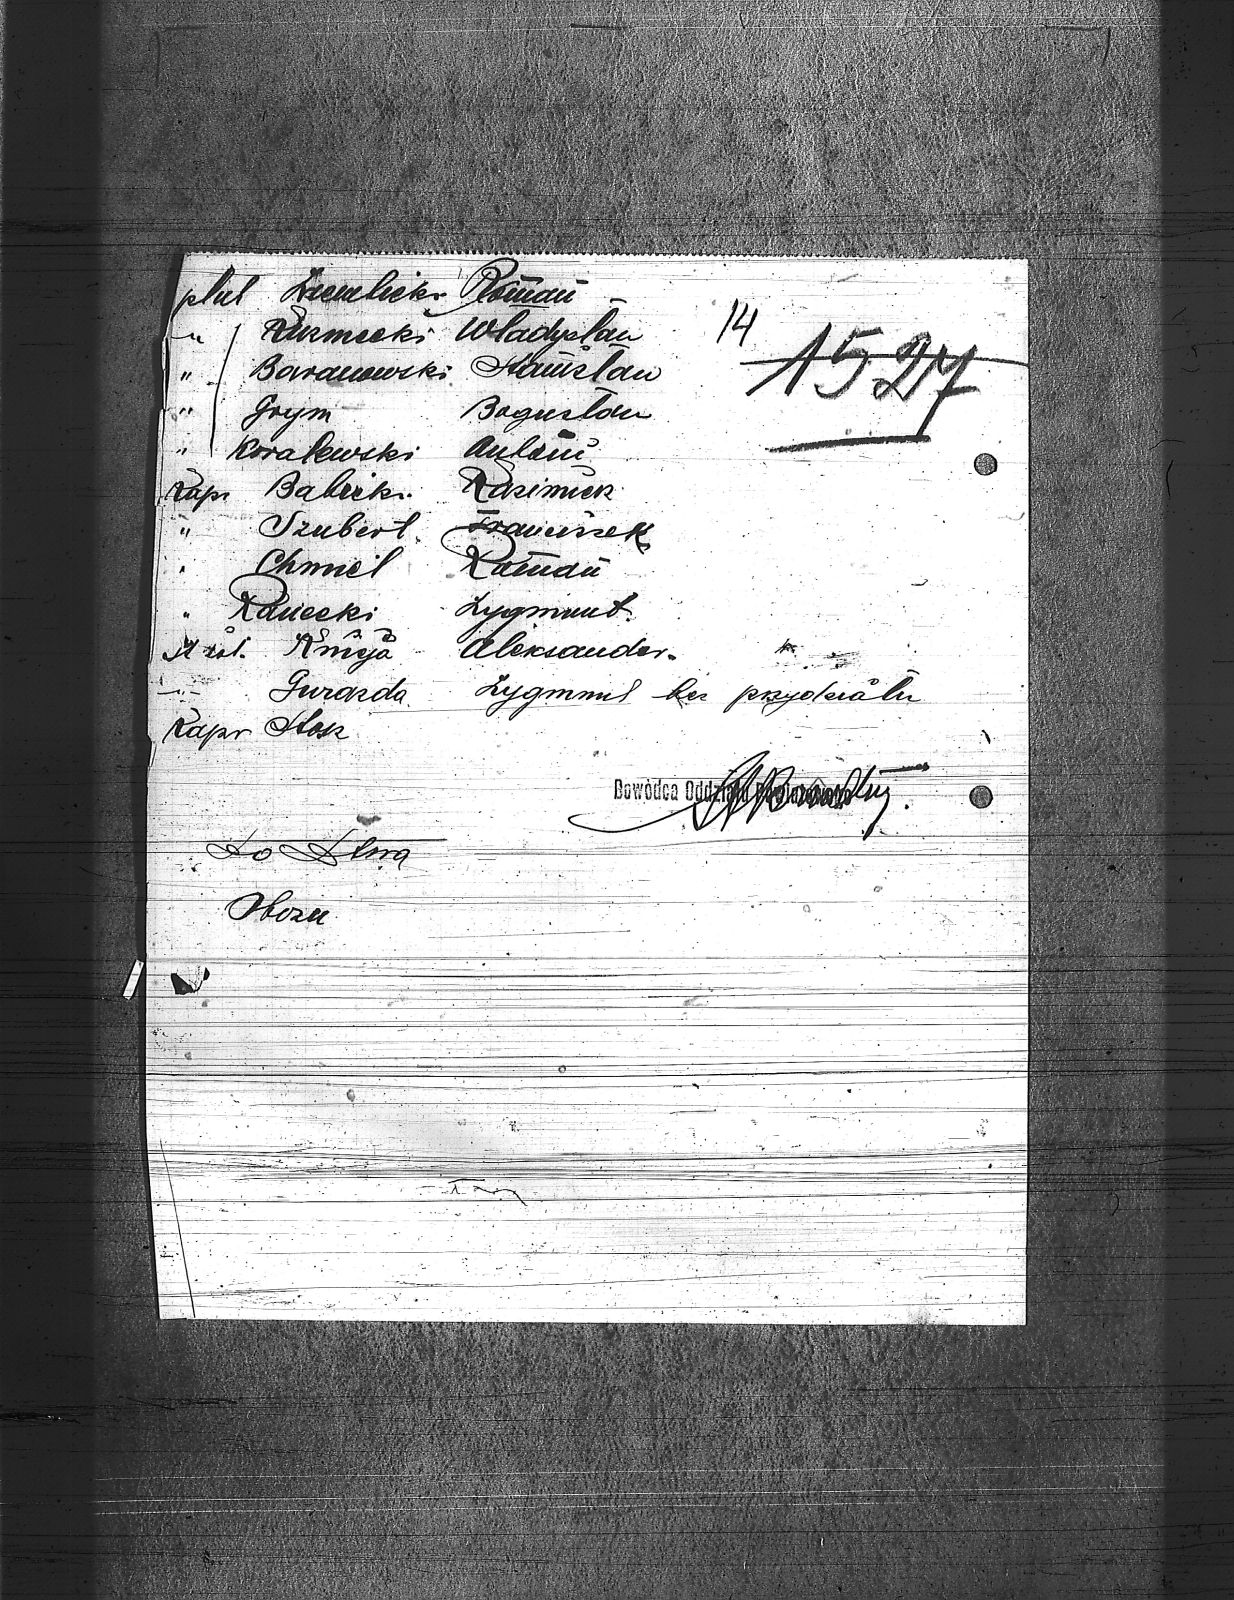 plut Ziemlicki Roman
" Kuźmecki Władysław
" Baranowski Stanisław
" Grym Bogusław
" Koralewski Antoni
Kapr Babicki Kazimierz
" Szubert Franciszek
" Chmiel Roman
" Raniecki Zygmunt
Strzel. Knieja Aleksander
" Gurazda Zygmunt bez przydziału
Kapr Stok
14
1527
Dowódca Oddziału
Do
Obozu